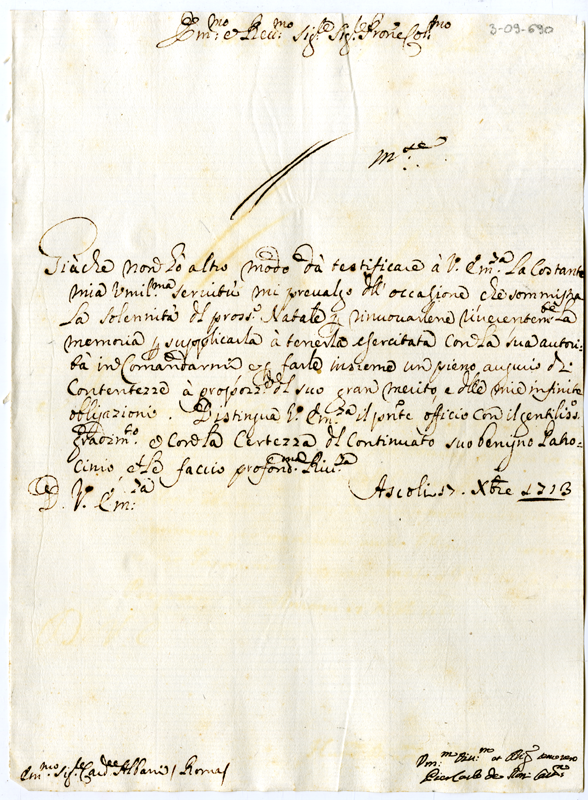 3-09-690
Em:mo e Rev:mo Sig:r Sig:r Prone Col:mo
Giache non hò altro modo dà testificare à V. Em:za la costante
mia Umil:ma servitù mi prevalgo dell'occasione che somministra
la solennità del pross:o Natale rinuovarene riverentem:te la
memoria, e supplicarla à tenerla esercitata con la sua autori-
tà in Comandarmi e farle insieme un pieno augurio di
Contentezze à proporz:ne del suo gran merito e delle mie infinite
obligazioni. Distingua V. Em:za il pnte officio con il gentiliss:o
gradim:to e con la certezza del continuato suo benigno Patro-
cinio, le faccio profond:ma Riv:za
D. V. Em:za
Ascoli 17. Xbre 1713
Em:mo Sig:r Card:le Albani / Roma /
Um:mo Div:mo et Obl:mo servitore